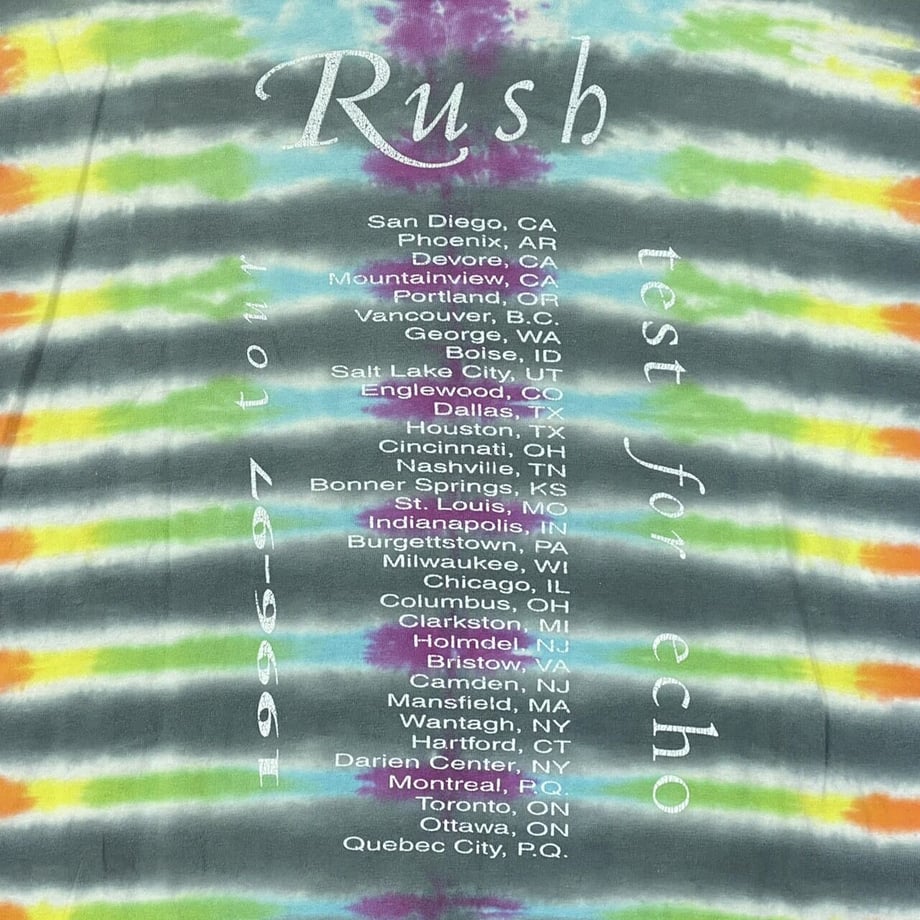 Rush
San Diego, CA
Phoenix, AR
Devore, CA
Mountainview, CA
Portland, OR
Vancouver, B.C.
George, WA
Boise, ID
Salt Lake City, UT
Englewood, CO
Dallas, TX
Houston, TX
Cincinnati, OH
Nashville, TN
Bonner Springs, KS
St. Louis, MO
Indianapolis, IN
Burgettstown, PA
Milwaukee, WI
Chicago, IL
Columbus, OH
Clarkston, MI
Holmdel, NJ
Bristow, VA
Camden, NJ
Mansfield, MA
Wantagh, NY
Hartford, CT
Darien Center, NY
Montreal, P.Q.
Toronto, ON
Ottawa, ON
Quebec City, P.Q.
1996-97 tour
test for echo